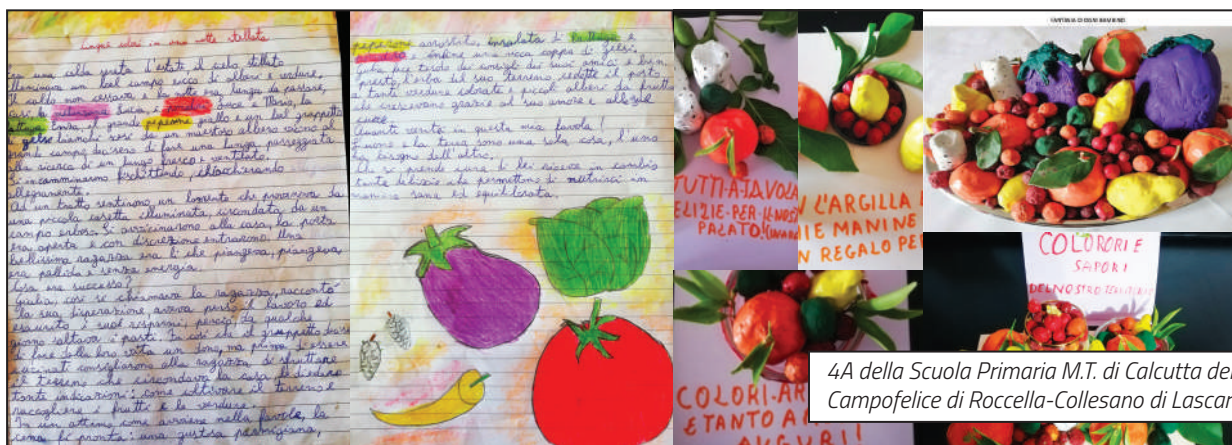 Cinque colori in una notte stellata
Era una calda serata d'estate il cielo stellato
illuminava un bel campo ricco di alberi e verdure,
Il caldo non cessava e la notte era lunga da passare,
Così la melanzana Lucia e il pomodoro Mario, la
lattuga Linda, il grande peperone giallo e un bel grappetto
di gelse bianche resi da un maestoso albero vicino al
grande campo, decisero di fare una lunga passeggiata
alla ricerca di un luogo fresco e ventilato.
Si incamminarono fischiettando, chiacchierando
allegramente.
Ad un tratto sentirono un lamento che proveniva da
una piccola casetta illuminata, circondata da un
campo erboso. Si avvicinarono alla casa, la porta
era aperta e con discrezione entrarono. Una
bellissima ragazza era lì che piangeva, piangeva,
era pallida e senza energia.
Cosa era successo?
Giulia, così si chiamava la ragazza, raccontò
la sua disperazione, aveva perso il lavoro ed
esaurito i suoi risparmi, perciò da qualche
giorno saltava i pasti. Fu così che il grappetto decise
di fare della loro vita un dono, ma prima d'essere
cucinati consigliarono alla ragazza di sfruttare
il terreno che circondava la casa e le diedero
tante indicazioni: come coltivare il terreno e
raccogliere i frutti e le verdure.
In un attimo come avviene nelle favole, la
cena fu pronta: una gustosa parmigiana,
peperone arrostito, insalata di lattuga e
pomodoro e infine una ricca coppa di gelsi.
Giulia fece tesoro dei consigli dei suoi amici e ben
presto l'erba del suo terreno, cedette il posto
a tante verdure colorate e piccoli alberi da frutta
che crescevano grazie al suo amore e all'agile
cuore.
Quanti verità in questa mia favola!
L'uomo e la terra sono una sola cosa, l'uno
ha bisogno dell'altro.
Chi si prende cura di lei riceve in cambio
tante delizie che permettono di nutrirci in
maniera sana ed equilibrata.
TUTTI-A-TAVOLA
ELIZIE-PER-IL-NOST
PALATO!
N L'ARGILLA E
IE MANINE
N REGALO PER
COLORI-AR
E TANTO A
AUGURI!
FANTASIA DI OGNI BAMBINO
COLORORI E
SAPORI
DEL NOSTRO TERRITORIO
4A della Scuola Primaria M.T. di Calcutta del
Campofelice di Roccella-Collesano di Lascar